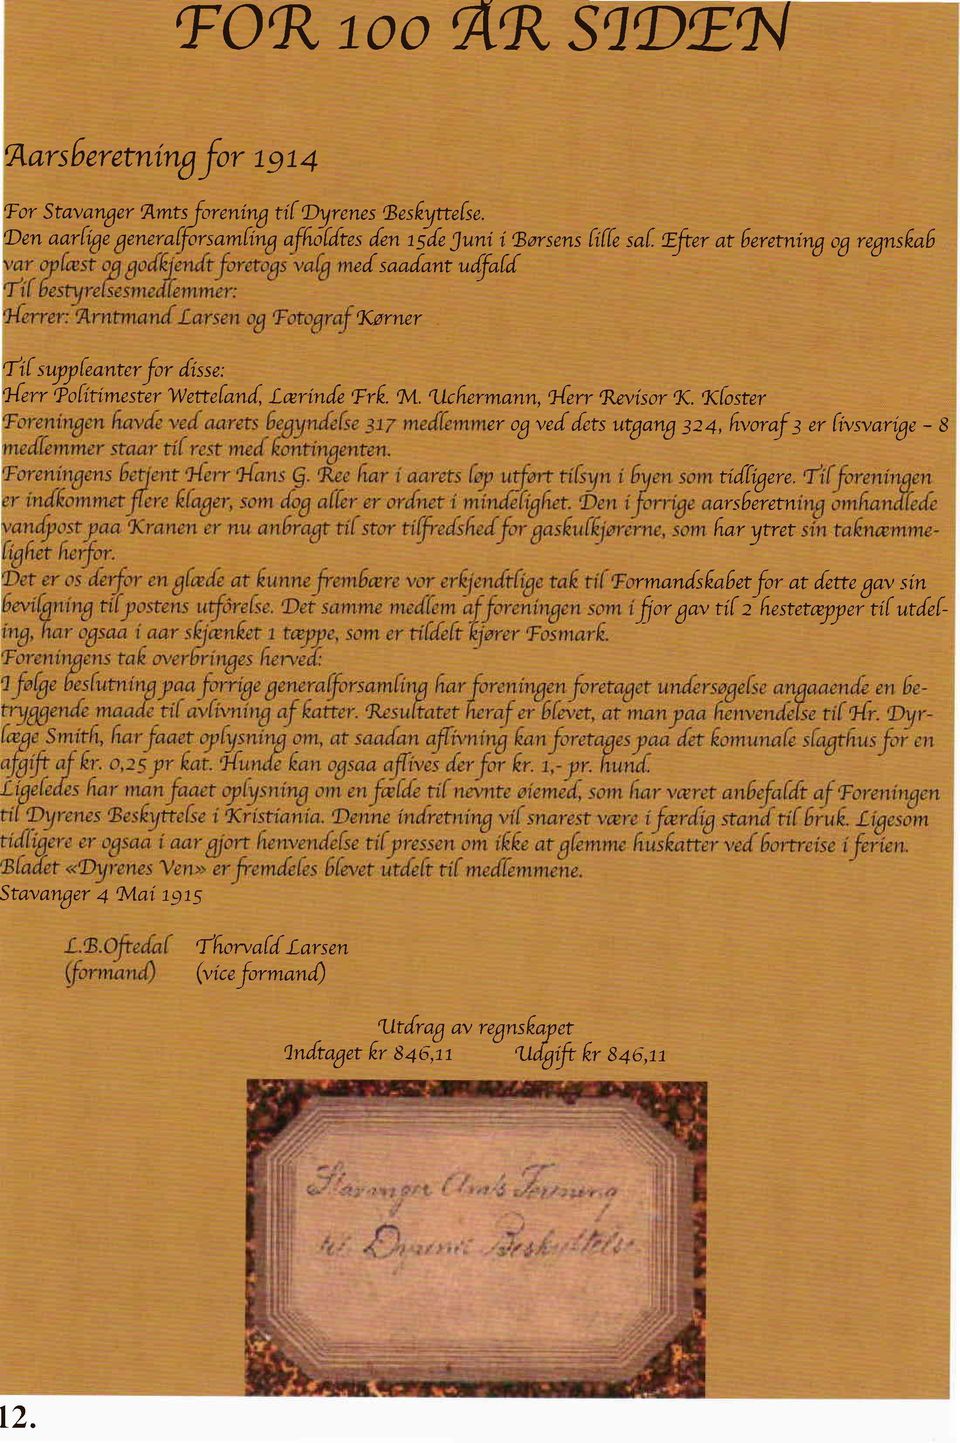 FOR 100 ÅR SIDEN
Aarsberetning for 1914
For Stavanger Amts forening til Dyrenes Beskyttelse.
Den aarlige generalforsamling afholdtes den 15de Juni i Børsens lille sal. Efter at beretning og regnskab
var oplæst og godkjendt foretogs valg med saadant udfald
Til bestyrelsesmedlemmer:
Herrer: Arntmand Larsen og Fotograf Kørner
Til suppleanter for disse:
Herr Politimester Wetteland, Lærinde Frk. M. Uchermann, Herr Revisor K. Kloster
Foreningen havde ved aarets begyndelse 317 medlemmer og ved dets utgang 324, hvoraf 3 er livsvarige - 8
medlemmer staar til rest med kontingenten.
Foreningens betjent Herr Hans G. Ree har i aarets løp utført tilsyn i byen som tidligere. Til foreningen
er indkommet flere klager, som dog aller er ordnet i mindelighet. Den i forrige aarsberetning omhandlede
vandpost paa Kranen er nu anbragt til stor tilfredshed for gaskulkjørerne, som har ytret sin taknæmme-
lighet herfor.
Det er os derfor en glæde at kunne frembære vor erkjendtlige tak til Formandskabet for at dette gav sin
bevilgning til postens utførelse. Det samme medlem af foreningen som i fjor gav til 2 hestetæpper til utdel-
ing, har ogsaa i aar skjænket 1 tæppe, som er tildelt kjører Fosmark.
Foreningens tak overbringes herved:
I følge beslutning paa forrige generalforsamling har foreningen foretaget undersøgelse angaaende en be-
tryggende maade til avlivning af katter. Resultatet heraf er blevet, at man paa henvendelse til Hr. Dyr-
læge Smith, har faaet oplysning om, at saadan aflivning kan foretages paa det komunale slagthus for en
afgift af kr. 0,25 pr kat. Hunde kan ogsaa aflives der for kr. 1,- pr. hund.
Ligeledes har man faaet oplysning om en fælde til nevnte øiemed, som har været anbefaldt af Foreningen
til Dyrenes Beskyttelse i Kristiania. Denne indretning vil snarest være i færdig stand til bruk. Ligesom
tidligere er ogsaa i aar gjort henvendelse til pressen om ikke at glemme huskatter ved bortreise i ferien.
Bladet «Dyrenes Ven» er fremdeles blevet utdelt til medlemmene.
Stavanger 4 Mai 1915
L.B.Oftedal Thorvald Larsen
(formand) (vice formand)
Utdrag av regnskapet
Indtaget kr 846,11 Udgift kr 846,11
Stavanger Amts Forening
til Dyrenes Beskyttelse.
12.